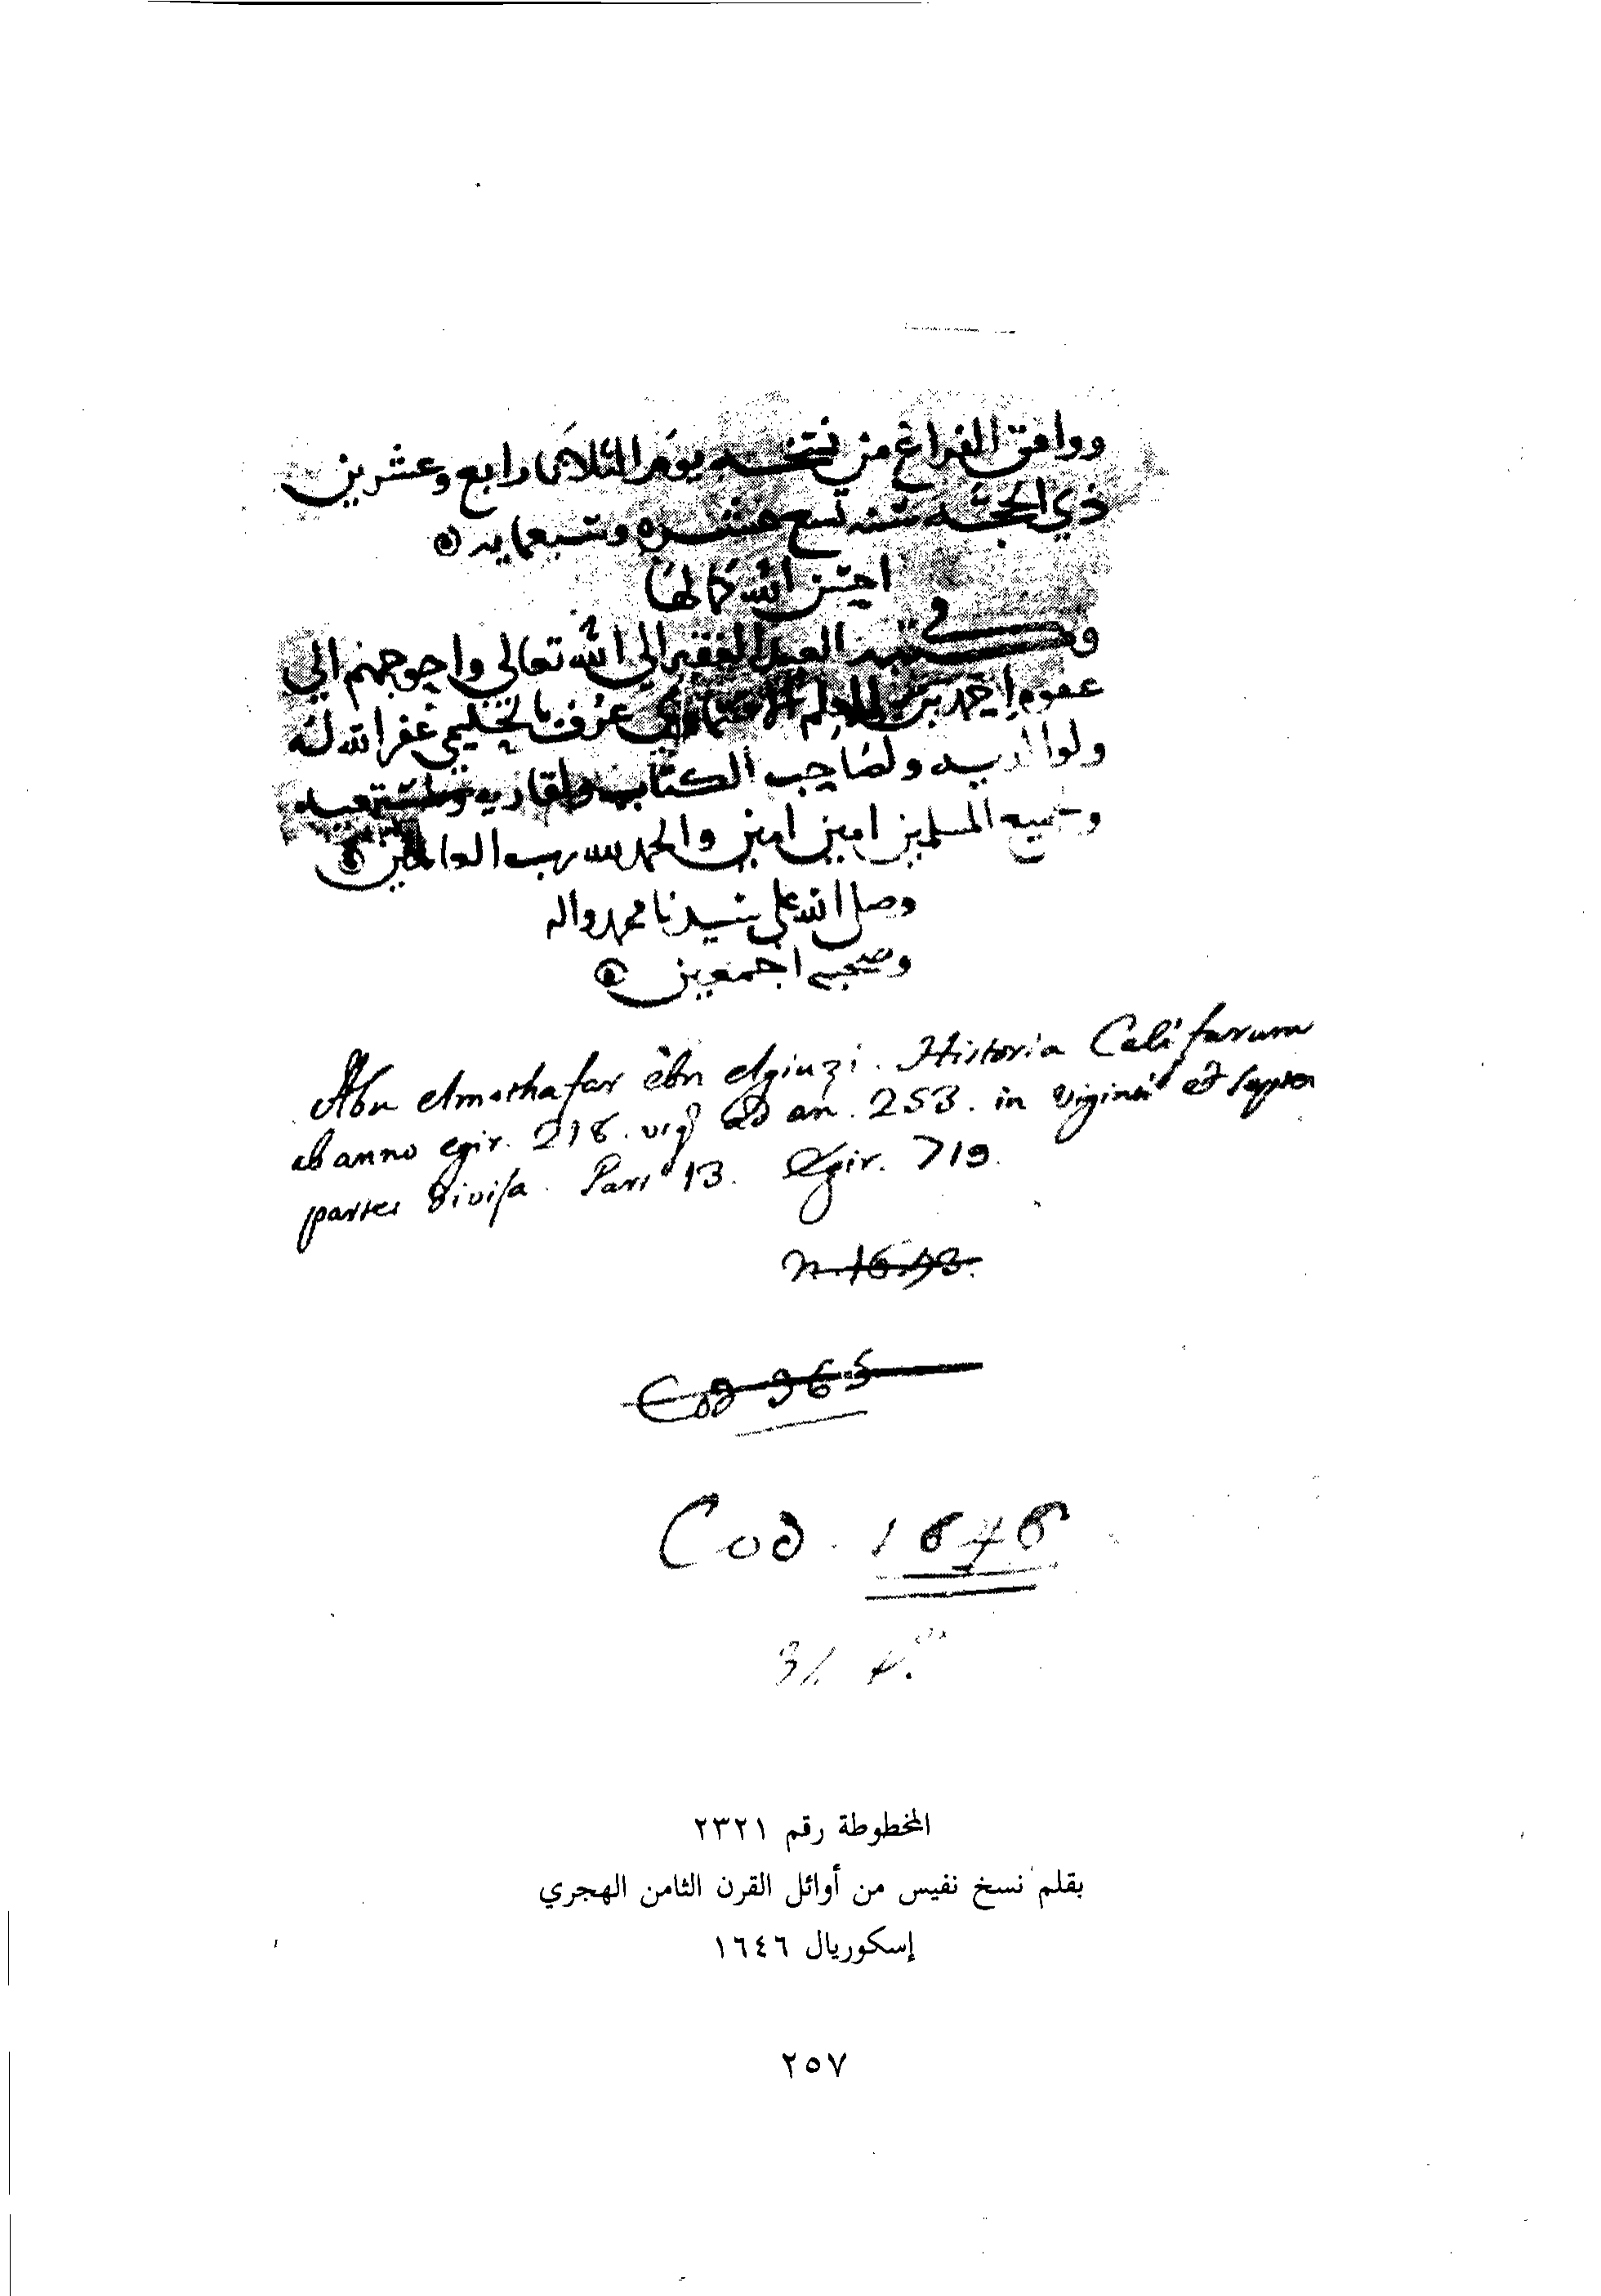 ووافق الفراغ من نسخه يوم الثلاثا رابع وعشرين
ذي الحجه سنه تسع عشره وسبعمايه
احسن الله كمالها
وكتبه العبد الفقير الى الله تعالى واحوجهم الي
عفوه احمد بن عرف بالخليمي غفر الله له
ولوالديه ولصاحب الكتاب ولقاريه
وجميع المسلمين امين امين والحمد لله رب العالمين
وصل الله على سيدنا محمد واله
وصحبه اجمعين
Abu elmothafar ebn elgiuzi. Historia Califarum
ab anno egir. 218. usq ad an. 253. in viginti et septem
partes divisa. Pars 13. Egir. 719.
n. 1643.
Cod 965
Cod. 1646
المخطوطة رقم ٢٣٢١
بقلم نسخ نفيس من أوائل القرن الثامن الهجري
إسكوريال ١٦٤٦
٢٥٧